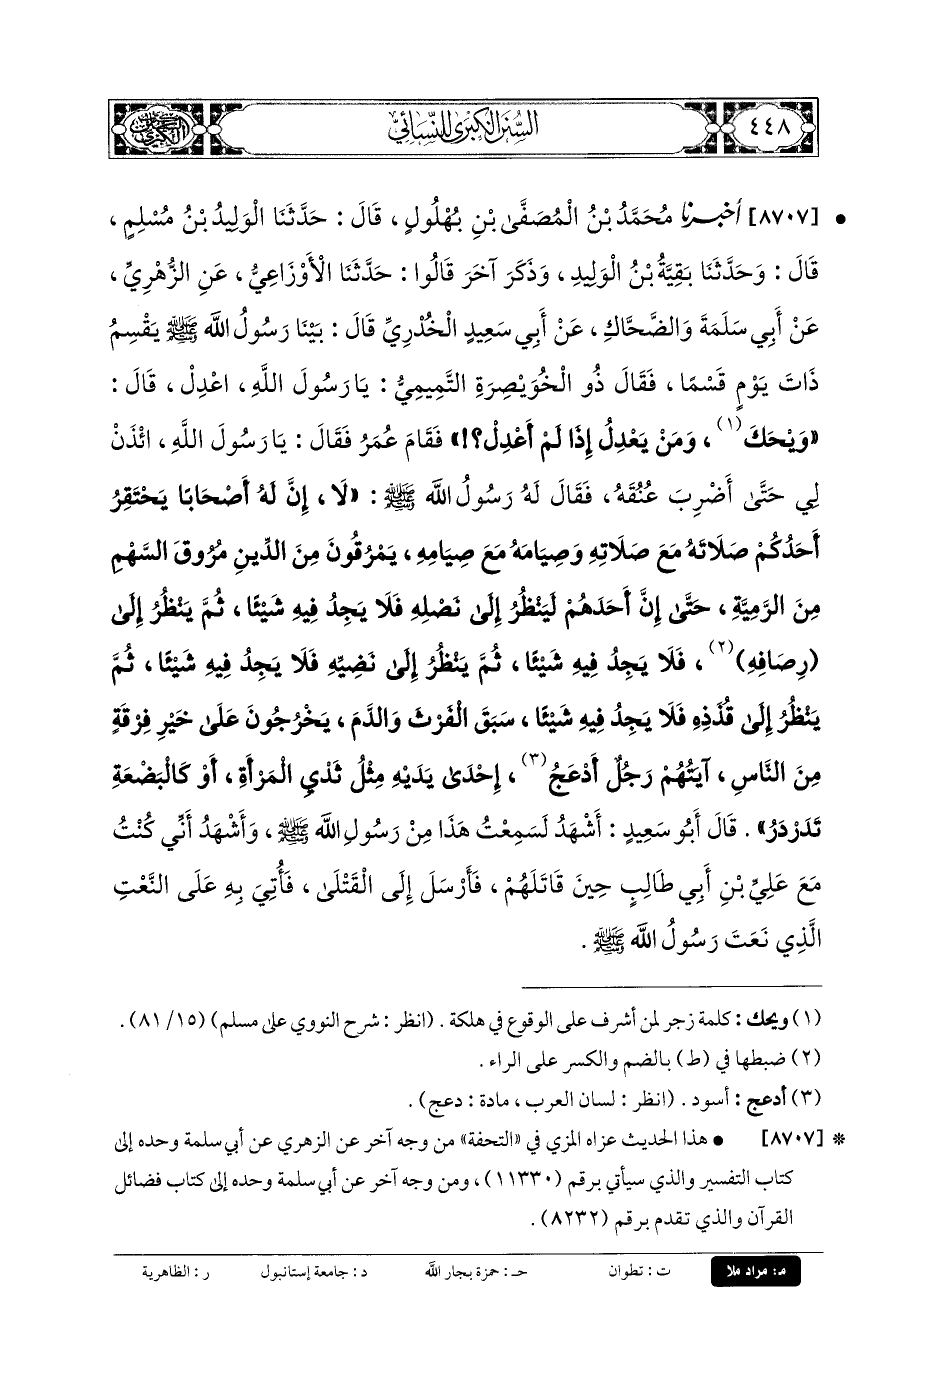 ٤٤٨
السُّنَنُ الكُبْرَىٰ لِلنَّسَائِيِّ
• [٨٧٠٧] أَخْبَرَنَا مُحَمَّدُ بْنُ الْمُصَفَّىٰ بْنِ بُهْلُولٍ ، قَالَ : حَدَّثَنَا الْوَلِيدُ بْنُ مُسْلِمٍ ،
قَالَ : وَحَدَّثَنَا بَقِيَّةُ بْنُ الْوَلِيدِ ، وَذَكَرَ آخَرَ قَالُوا : حَدَّثَنَا الْأَوْزَاعِيُّ ، عَنِ الزُّهْرِيِّ ،
عَنْ أَبِي سَلَمَةَ وَالضَّحَّاكِ ، عَنْ أَبِي سَعِيدٍ الْخُدْرِيِّ قَالَ : بَيْنَا رَسُولُ اللَّهِ ﷺ يَقْسِمُ
ذَاتَ يَوْمٍ قَسْمًا ، فَقَالَ ذُو الْخُوَيْصِرَةِ التَّمِيمِيُّ : يَا رَسُولَ اللَّهِ ، اعْدِلْ ، قَالَ :
«وَيْحَكَ(١) ، وَمَنْ يَعْدِلُ إِذَا لَمْ أَعْدِلْ؟!» فَقَامَ عُمَرُ فَقَالَ : يَا رَسُولَ اللَّهِ ، ائْذَنْ
لِي حَتَّىٰ أَضْرِبَ عُنُقَهُ ، فَقَالَ لَهُ رَسُولُ اللَّهِ ﷺ : «لَا ، إِنَّ لَهُ أَصْحَابًا يَحْتَقِرُ
أَحَدُكُمْ صَلَاتَهُ مَعَ صَلَاتِهِ وَصِيَامَهُ مَعَ صِيَامِهِ ، يَمْرُقُونَ مِنَ الدِّينِ مُرُوقَ السَّهْمِ
مِنَ الرَّمِيَّةِ ، حَتَّىٰ إِنَّ أَحَدَهُمْ لَيَنْظُرُ إِلَىٰ نَصْلِهِ فَلَا يَجِدُ فِيهِ شَيْئًا ، ثُمَّ يَنْظُرُ إِلَىٰ
(رِصَافِهِ)(٢) ، فَلَا يَجِدُ فِيهِ شَيْئًا ، ثُمَّ يَنْظُرُ إِلَىٰ نَضِيِّهِ فَلَا يَجِدُ فِيهِ شَيْئًا ، ثُمَّ
يَنْظُرُ إِلَىٰ قُذَذِهِ فَلَا يَجِدُ فِيهِ شَيْئًا ، سَبَقَ الْفَرْثَ وَالدَّمَ ، يَخْرُجُونَ عَلَىٰ خَيْرِ فِرْقَةٍ
مِنَ النَّاسِ ، آيَتُهُمْ رَجُلٌ أَدْعَجُ(٣) ، إِحْدَىٰ يَدَيْهِ مِثْلُ ثَدْيِ الْمَرْأَةِ ، أَوْ كَالْبَضْعَةِ
تَدَرْدَرُ» . قَالَ أَبُو سَعِيدٍ : أَشْهَدُ لَسَمِعْتُ هَذَا مِنْ رَسُولِ اللَّهِ ﷺ ، وَأَشْهَدُ أَنِّي كُنْتُ
مَعَ عَلِيِّ بْنِ أَبِي طَالِبٍ حِينَ قَاتَلَهُمْ ، فَأَرْسَلَ إِلَى الْقَتْلَىٰ ، فَأُتِيَ بِهِ عَلَى النَّعْتِ
الَّذِي نَعَتَ رَسُولُ اللَّهِ ﷺ .
(١) ويحك : كلمة زجر لمن أشرف على الوقوع في هلكة . (انظر : شرح النووي على مسلم) (١٥/ ٨١) .
(٢) ضبطها في (ط) بالضم والكسر على الراء .
(٣) أدعج : أسود . (انظر : لسان العرب ، مادة : دعج) .
* [٨٧٠٧] • هذا الحديث عزاه المزي في «التحفة» من وجه آخر عن الزهري عن أبي سلمة وحده إلى
كتاب التفسير والذي سيأتي برقم (١١٣٣٠) ، ومن وجه آخر عن أبي سلمة وحده إلى كتاب فضائل
القرآن والذي تقدم برقم (٨٢٣٢) .
م: مراد ملا ت : تطوان حـ : حمزة بجار الله د : جامعة إستانبول ر : الظاهرية